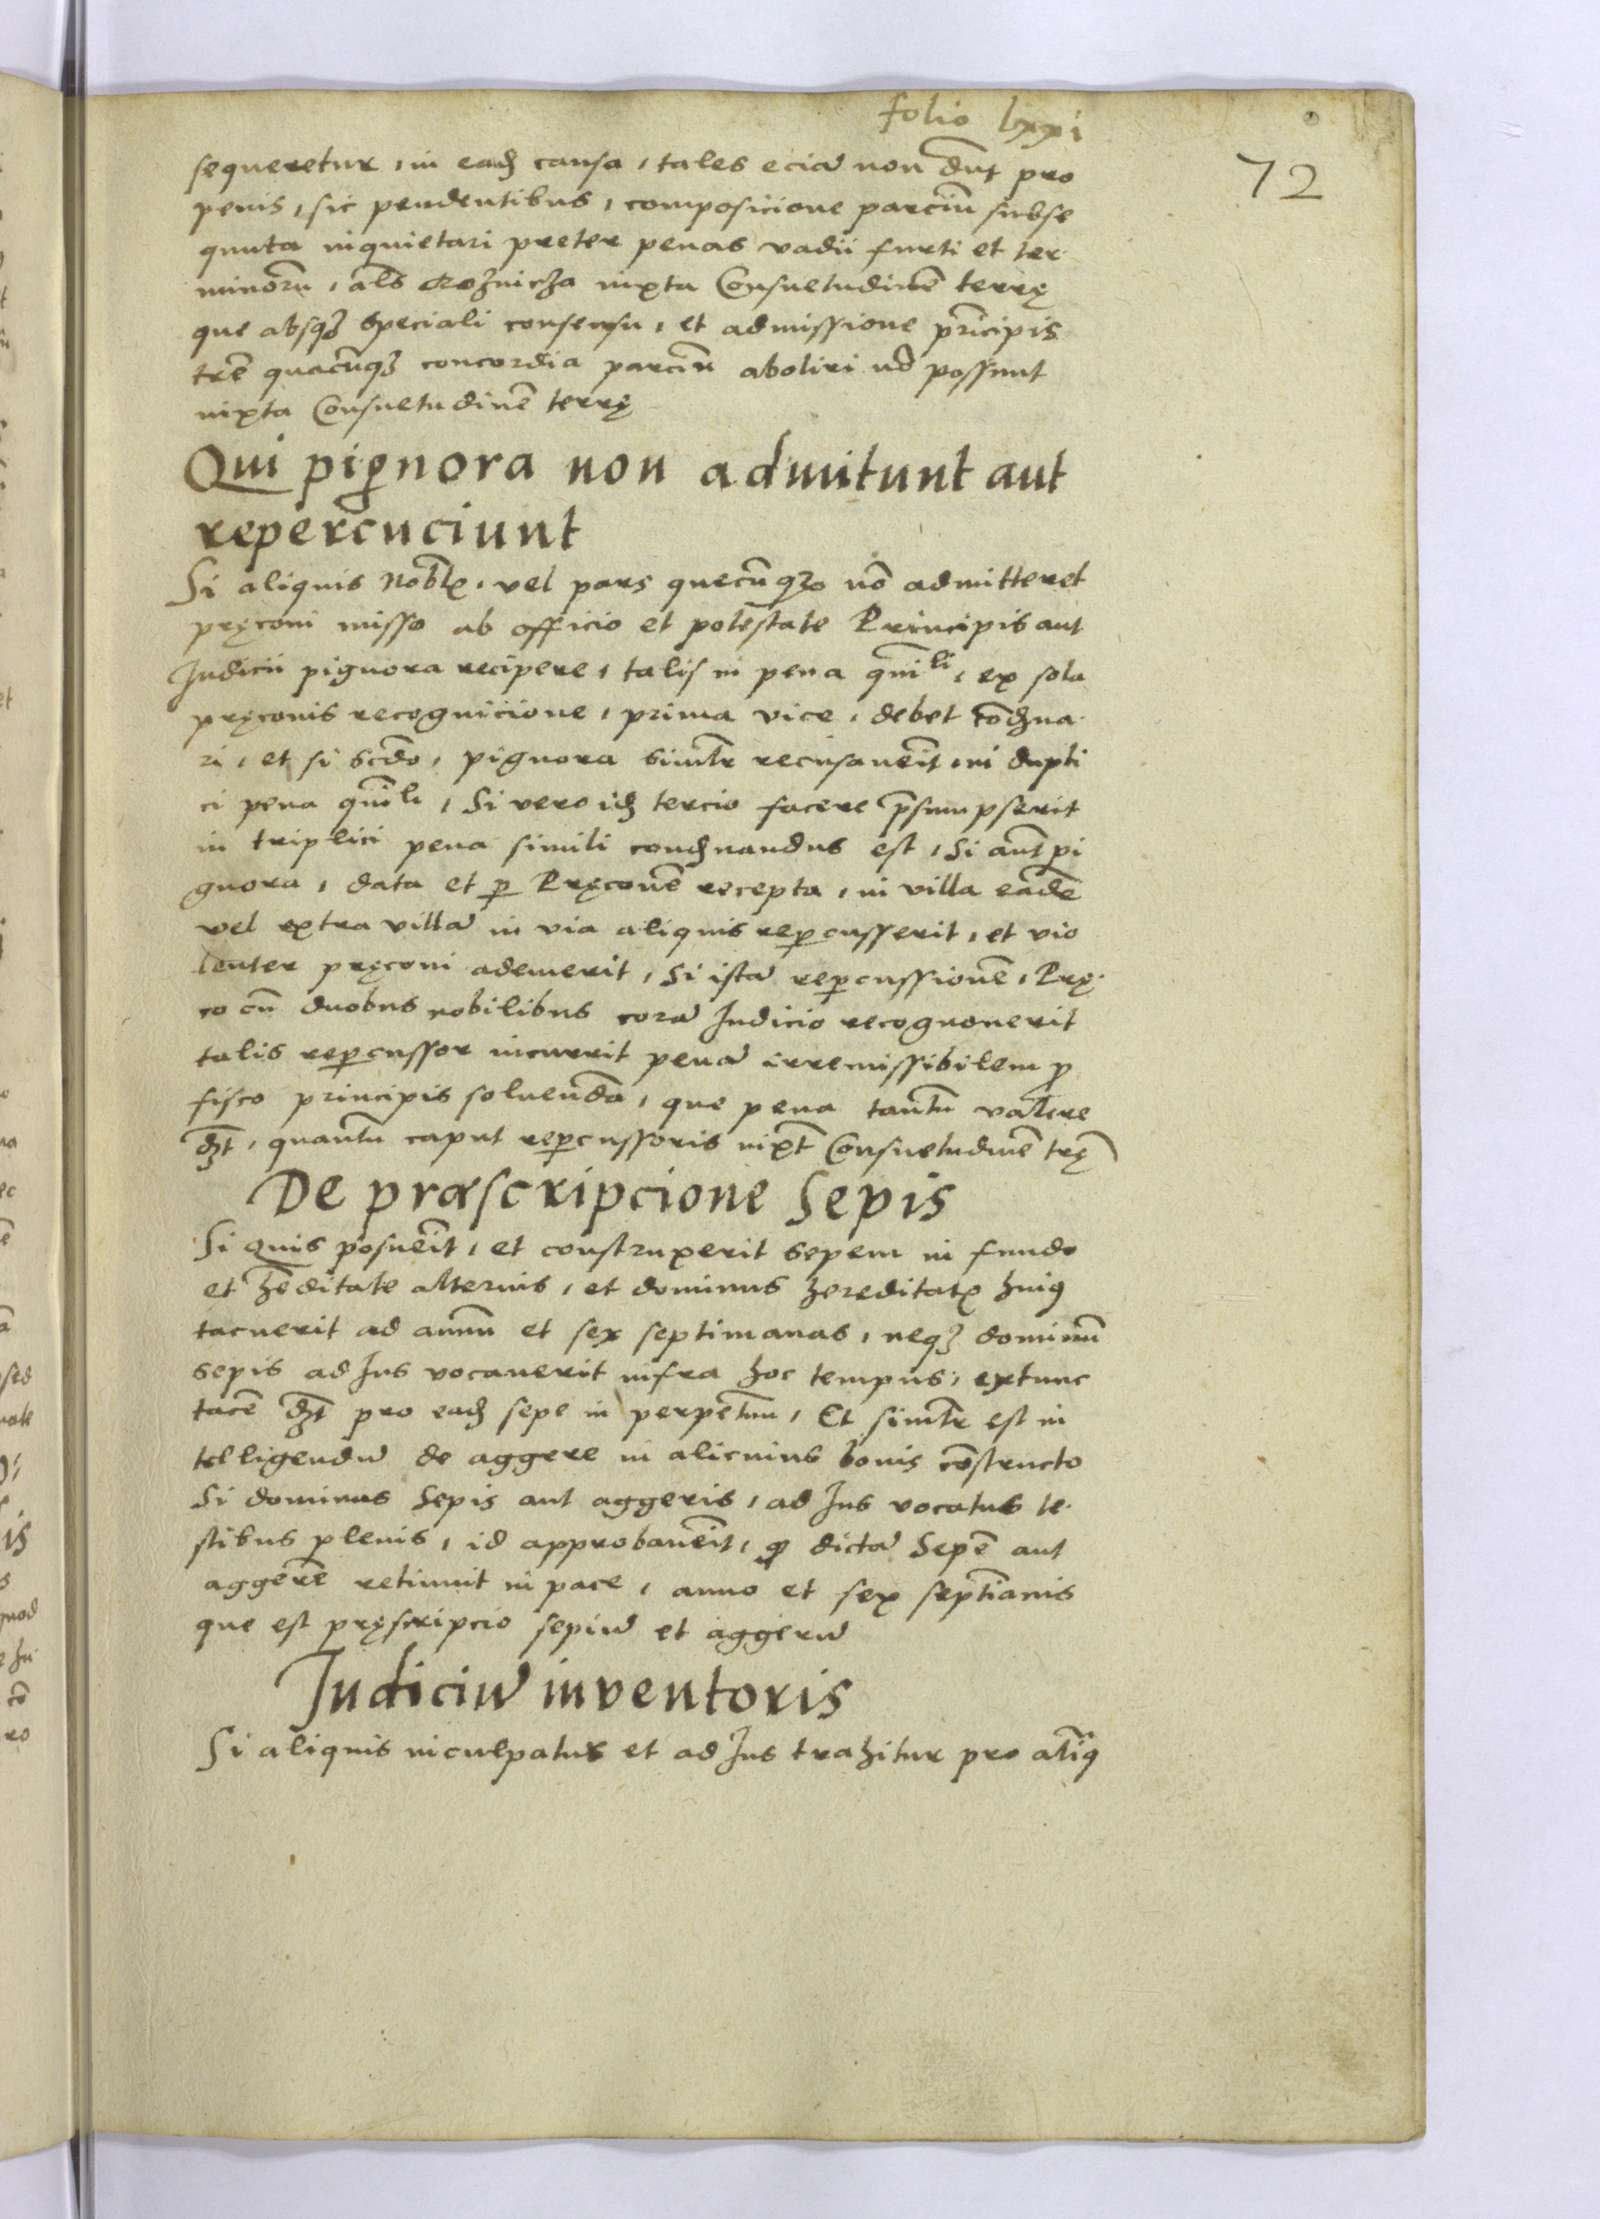 folio lxxi
72
sequeretur, in eadȝ causa, tales eciā non dn̄t pro
penis, sic pendentibus, composicione parciū subse
quuta inquietari preter penas vadii furti et ter
minorū, als̄ Rożnicza iuxta Consuetudinē terrę
que absqȝ speciali consensu, et admissione prīcipis
trē quacūqȝ concordia parciū aboliri nō possunt
iuxta Consuetudinē terrę
Qui pignora non admitunt aut
repercuciunt
Si aliquis Nobl̄, vel pars quecūqȝ nō admitteret
pręconi misso ab officio et potestate Principis aut
Judicii pignora recipere, talis in pena qīnli, ex sola
pręconis recognicione, prima vice, debet cōdȝna
ri, et si scd̄o, pignora simlr̄ recusaueīt, in dupli
ci pena qīnli, Si vero idȝ tercio facere p̄sumpserit
in triplici pena simili condȝnandus est, Si aūt pi
gnora, data et p̱ Pręconē recepta, in villa eadē
vel extra villā in via aliquis rep̱cusserit, et vio
lenter pręconi ademerit, Si istā rep̱cussionē, Prę
co cū duobus nobilibus corā Judicio recognouerit
talis rep̱cussor incurrit penā irremissibilem p̱
fisco principis soluendā, que pena tantū valere
dȝt, quantū caput rep̱cussoris iuxt̄ Consuetudinē trę̄
De præscripcione Sepis
Si quis posueīt, et construxerit sepem in fundo
et hēditate alterius, et dominus hereditatꝭ huiꝰ
tacuerit ad annū et sex septimanas, neqȝ dominū
sepis ad Jus vocauerit infra hoc tempus, extunc
tacē dȝt pro eadȝ sepe in perpetuū, Et simlr̄ est in
telligendū de aggere in alicuius bonis cōstructo
Si dominus Sepis aut aggeris, ad Jus vocatus te
stibus plenis, id approbaueīt, ꝙ dictā Sepē aut
aggerē retinuit in pace, anno et sex septīanis
que est pręscripcio sepiū et aggerū
Judiciū inventoris
Si aliquis inculpatus et ad Jus trahitur pro alīqꝰ